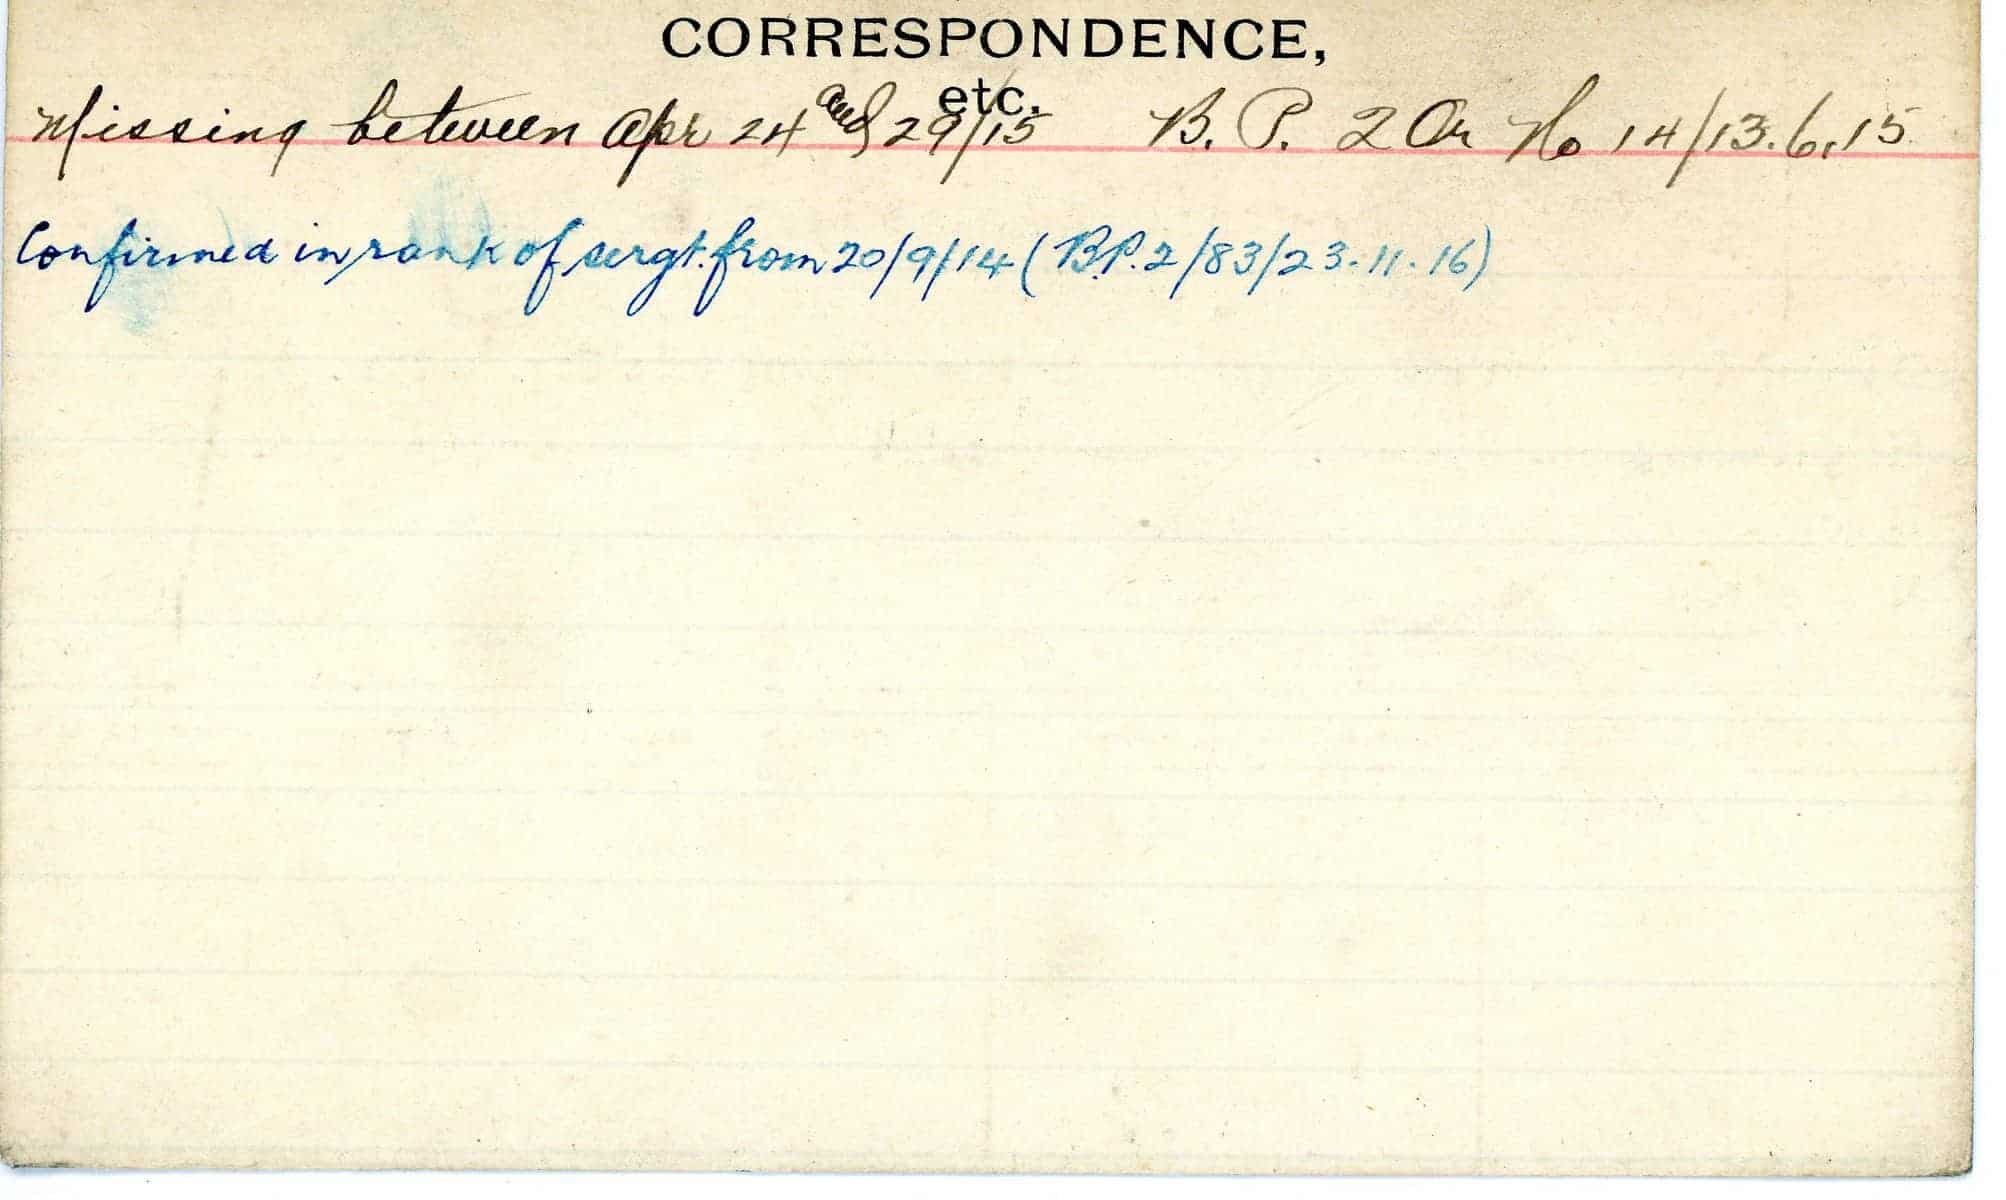 CORRESPONDENCE,
etc.
Missing between Apr 24 and 29/15 B. P. 2 Or No 14/13.6.15
Confirmed in rank of sergt. from 20/9/14 (B.P. 2/83/23.11.16)